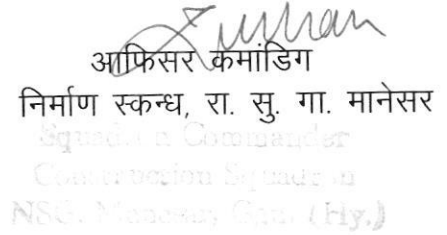 आफिसर कमांडिग
निर्माण स्कन्ध, रा. सु. गा. मानेसर
Squadron Commander
Construction Squadron
NSG, Manesar, Ggn. (Hy.)